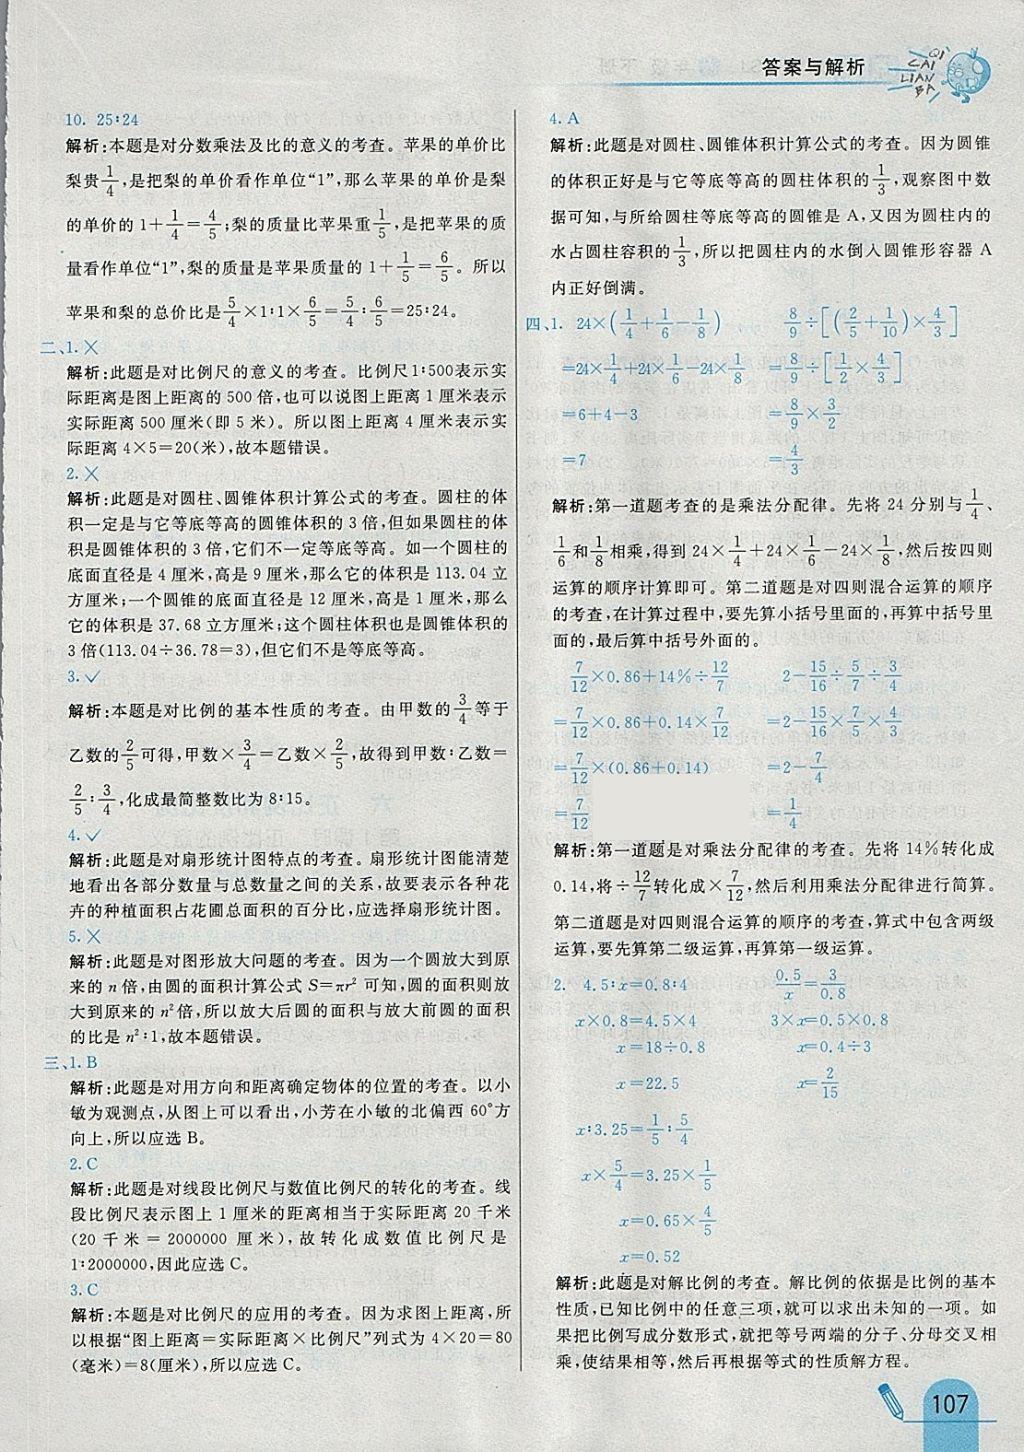 答案与解析
QI
CAI
LIAN
BA
10. 25∶24
解析:本题是对分数乘法及比的意义的考查。苹果的单价比
梨贵1/4,是把梨的单价看作单位“1”,那么苹果的单价是梨
的单价的1+1/4=4/5;梨的质量比苹果重1/5,是把苹果的质
量看作单位“1”,梨的质量是苹果质量的1+1/5=6/5。所以
苹果和梨的总价比是5/4×1∶1×6/5=5/4∶6/5=25∶24。
二、1.×
解析:此题是对比例尺的意义的考查。比例尺1∶500表示实
际距离是图上距离的500倍,也可以说图上距离1厘米表示
实际距离500厘米(即5米)。所以图上距离4厘米表示
实际距离4×5=20(米),故本题错误。
2.×
解析:此题是对圆柱、圆锥体积计算公式的考查。圆柱的体
积一定是与它等底等高的圆锥体积的3倍,但如果圆柱的体
积是圆锥体积的3倍,它们不一定等底等高。如一个圆柱的
底面直径是4厘米,高是9厘米,那么它的体积是113.04立
方厘米;一个圆锥的底面直径是12厘米,高是1厘米,那么
它的体积是37.68立方厘米;这个圆柱体积也是圆锥体积的
3倍(113.04÷36.78=3),但它们不是等底等高。
3.✓
解析:本题是对比例的基本性质的考查。由甲数的3/4等于
乙数的2/5可得,甲数×3/4=乙数×2/5,故得到甲数∶乙数=
2/5∶3/4,化成最简整数比为8∶15。
4.✓
解析:此题是对扇形统计图特点的考查。扇形统计图能清楚
地看出各部分数量与总数量之间的关系,故要表示各种花
卉的种植面积占花圃总面积的百分比,应选择扇形统计图。
5.×
解析:此题是对图形放大问题的考查。因为一个圆放大到原
来的n倍,由圆的面积计算公式S=πr²可知,圆的面积则放
大到原来的n²倍,所以放大后圆的面积与放大前圆的面积
的比是n²∶1,故本题错误。
三、1.B
解析:此题是对用方向和距离确定物体的位置的考查。以小
敏为观测点,从图上可以看出,小芳在小敏的北偏西60°方
向上,所以应选B。
2.C
解析:此题是对线段比例尺与数值比例尺的转化的考查。线
段比例尺表示图上1厘米的距离相当于实际距离20千米
(20千米=2000000厘米),故转化成数值比例尺是
1∶2000000,因此应选C。
3.C
解析:本题是对比例尺的应用的考查。因为求图上距离,所
以根据“图上距离=实际距离×比例尺”列式为4×20=80
(毫米)=8(厘米),所以应选C。
4.A
解析:此题是对圆柱、圆锥体积计算公式的考查。因为圆锥
的体积正好是与它等底等高的圆柱体积的1/3,观察图中数
据可知,与所给圆柱等底等高的圆锥是A,又因为圆柱内的
水占圆柱容积的1/3,所以把圆柱内的水倒入圆锥形容器A
内正好倒满。
四、1. 24×(1/4+1/6-1/8) 8/9÷[(2/5+1/10)×4/3]
=24×1/4+24×1/6-24×1/8 =8/9÷[1/2×4/3]
=6+4-3 =8/9×3/2
=7 =4/3
解析:第一道题考查的是乘法分配律。先将24分别与1/4、
1/6和1/8相乘,得到24×1/4+24×1/6-24×1/8,然后按四则
运算的顺序计算即可。第二道题是对四则混合运算的顺序
的考查,在计算过程中,要先算小括号里面的,再算中括号里
面的,最后算中括号外面的。
7/12×0.86+14%÷12/7 2-15/16÷5/7÷3/4
=7/12×0.86+0.14×7/12 =2-15/16×7/5×4/3
=7/12×(0.86+0.14) =2-7/4
=7/12 =1/4
解析:第一道题是对乘法分配律的考查。先将14%转化成
0.14,将÷12/7转化成×7/12,然后利用乘法分配律进行简算。
第二道题是对四则混合运算的顺序的考查,算式中包含两级
运算,要先算第二级运算,再算第一级运算。
2. 4.5∶x=0.8∶4 0.5/x=3/0.8
x×0.8=4.5×4 3×x=0.5×0.8
x=18÷0.8 x=0.4÷3
x=22.5 x=2/15
x∶3.25=1/5∶5/4
x×5/4=3.25×1/5
x=0.65×4/5
x=0.52
解析:此题是对解比例的考查。解比例的依据是比例的基本
性质,已知比例中的任意三项,就可以求出未知的一项。如
果把比例写成分数形式,就把等号两端的分子、分母交叉相
乘,使结果相等,然后再根据等式的性质解方程。
107